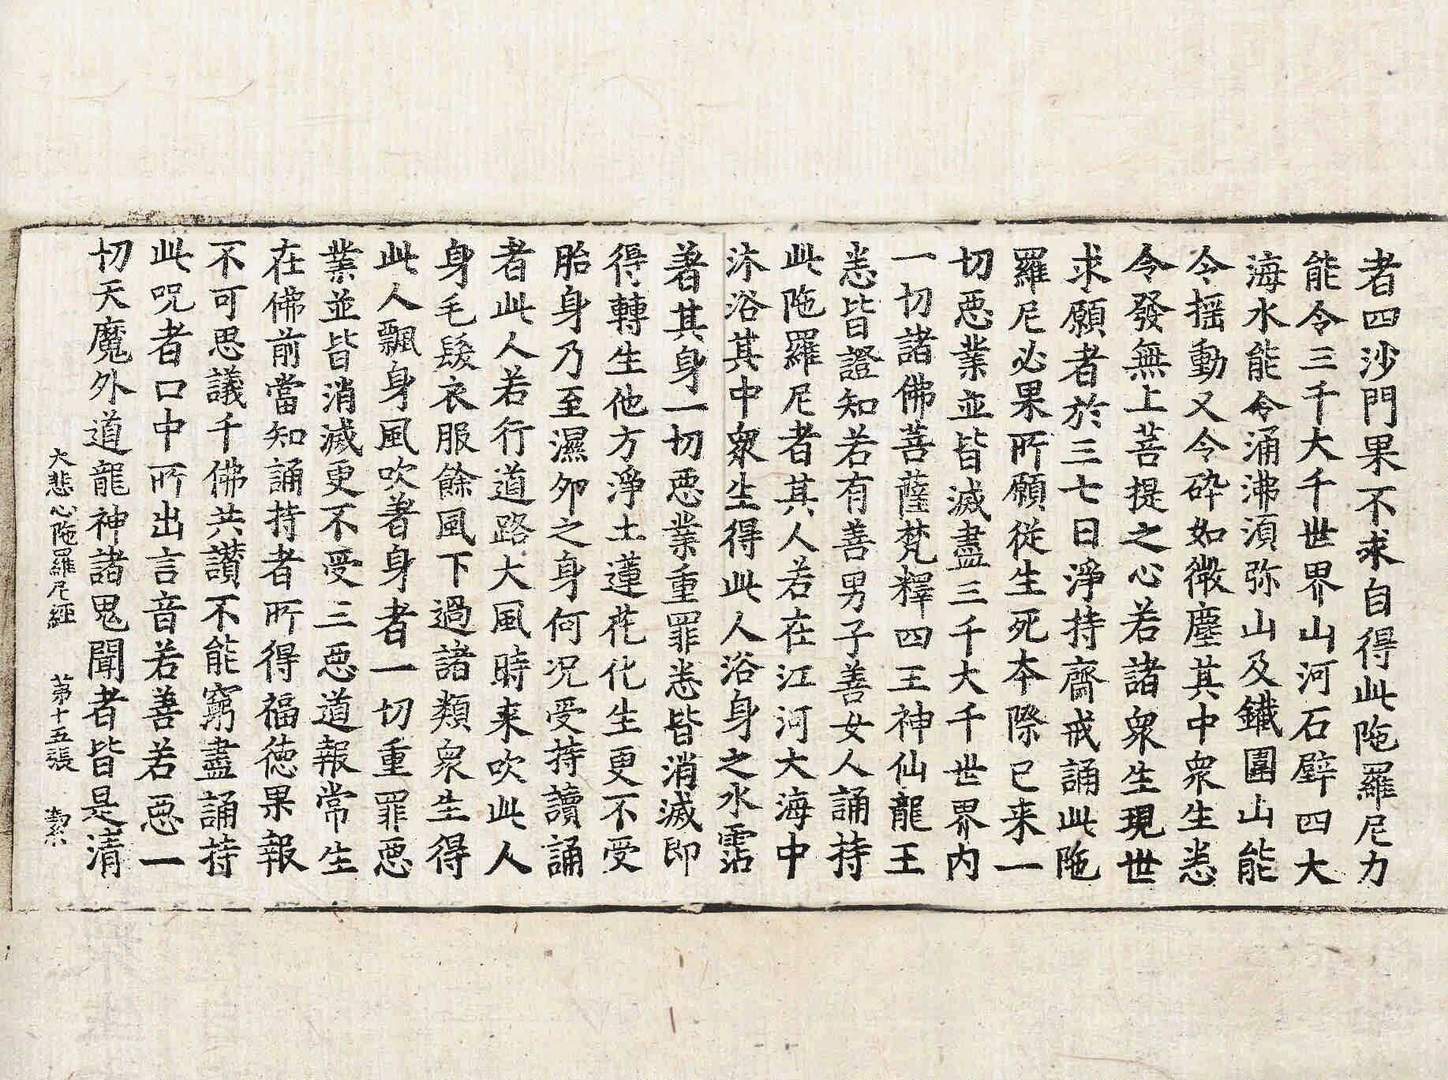 者四沙門果不求自得此陁羅尼力
能令三千大千世界山河石壁四大
海水能令涌沸須弥山及鐵圍山能
令揺動又令碎如微塵其中衆生悉
令發無上菩提之心若諸衆生現世
求願者於三七日淨持齋戒誦此陁
羅尼必果所願從生死本際已来一
切惡業並皆滅盡三千大千世界内
一切諸佛菩薩梵釋四王神仙龍王
悉皆證知若有善男子善女人誦持
此陁羅尼者其人若在江河大海中
沐浴其中衆生得此人浴身之水霑
著其身一切惡業重罪悉皆消滅即
得轉生他方淨土蓮花化生更不受
胎身乃至濕卵之身何況受持讀誦
者此人若行道路大風時来吹此人
身毛髮衣服餘風下過諸類衆生得
此人飄身風吹著身者一切重罪惡
業並皆消滅更不受三惡道報常生
在佛前當知誦持者所得福德果報
不可思議千佛共讃不能窮盡誦持
此呪者口中所出言音若善若惡一
切天魔外道龍神諸鬼聞者皆是清
大悲心陁羅尼經 第十五張